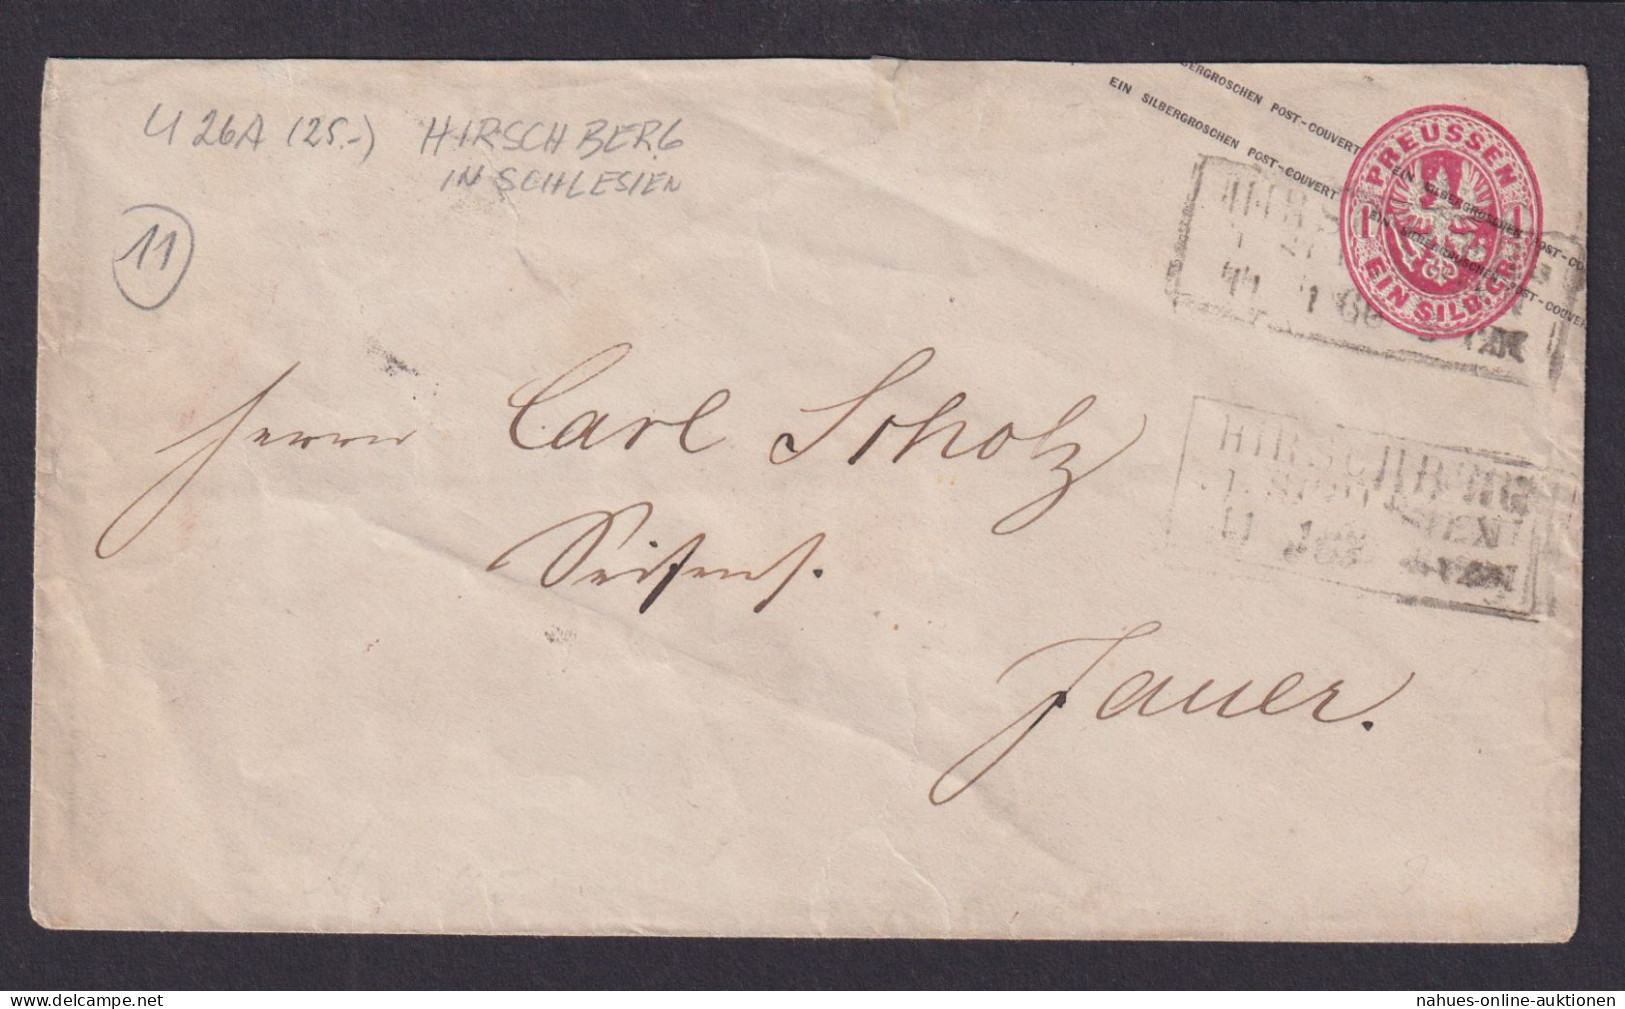 U 26A (25.-) HIRSCHBERG
IN SCHLESIEN
11
SILBERGROSCHEN POST-COUVERT EIN SILBERGROSCHEN POST-COU
EIN SILBERGROSCHEN POST-COUVERT EIN SILBERGROSCHEN POST-COUVER
PREUSSEN
1 1
EIN SILB. GR.
HIRSCHBERG
Herrn Carl Scholz
HIRSCHBERG
Seifens.
Jauer.
nahues-online-auktionen